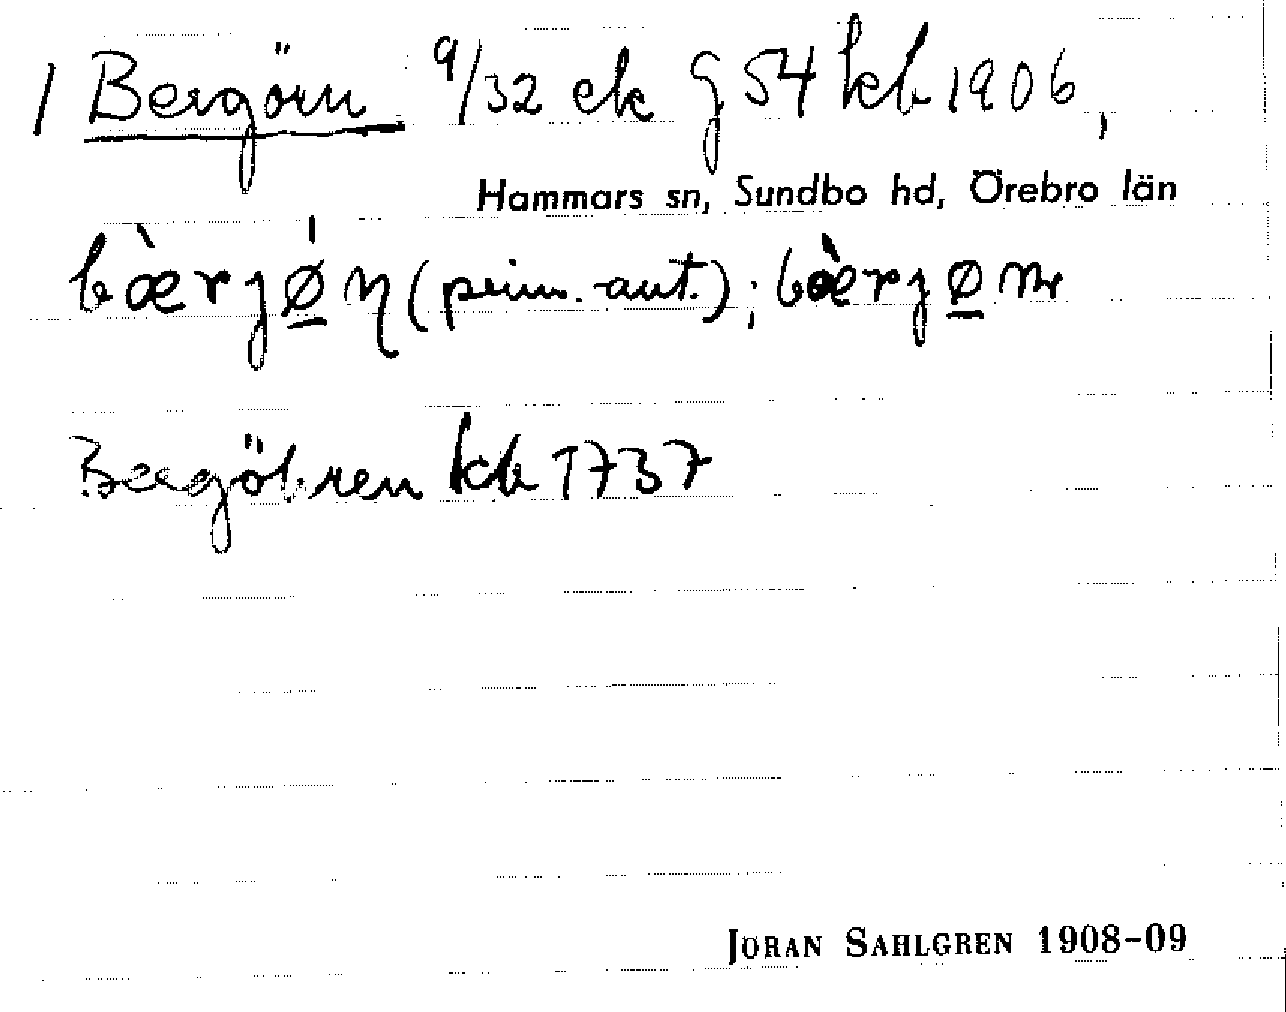 1 Bergörn 9/32 ek g 54 kb 1906,
Hammars sn, Sundbo hd, Örebro län
bæ̀rjǿ̲ɳ (prim.-aut.); bæ̀rjø̲ɳ
Bergöhren kb 1737
JÖRAN SAHLGREN 1908-09